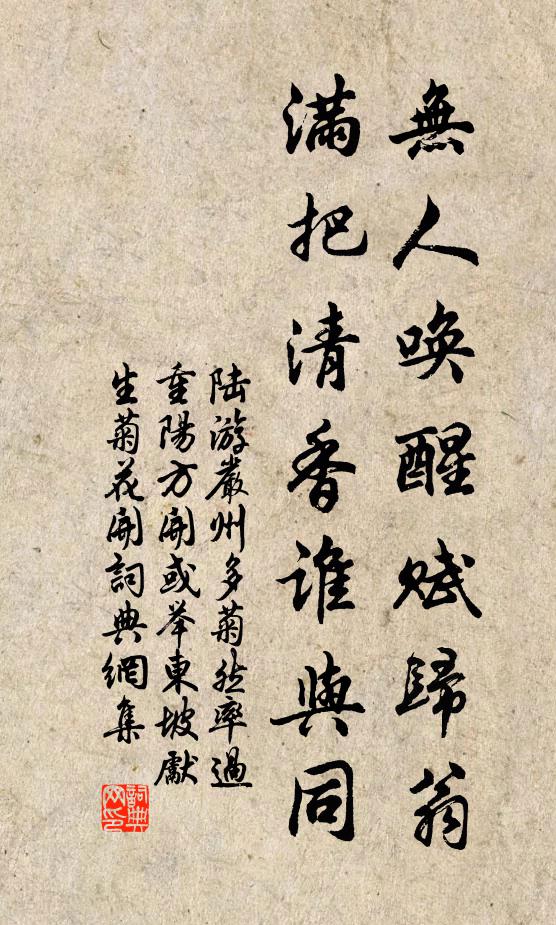 無人喚醒賦歸翁
滿把清香誰與同
陆游嚴州多菊然率過
重陽方開或举東坡獻
生菊花開詞典網集
詞典
网印